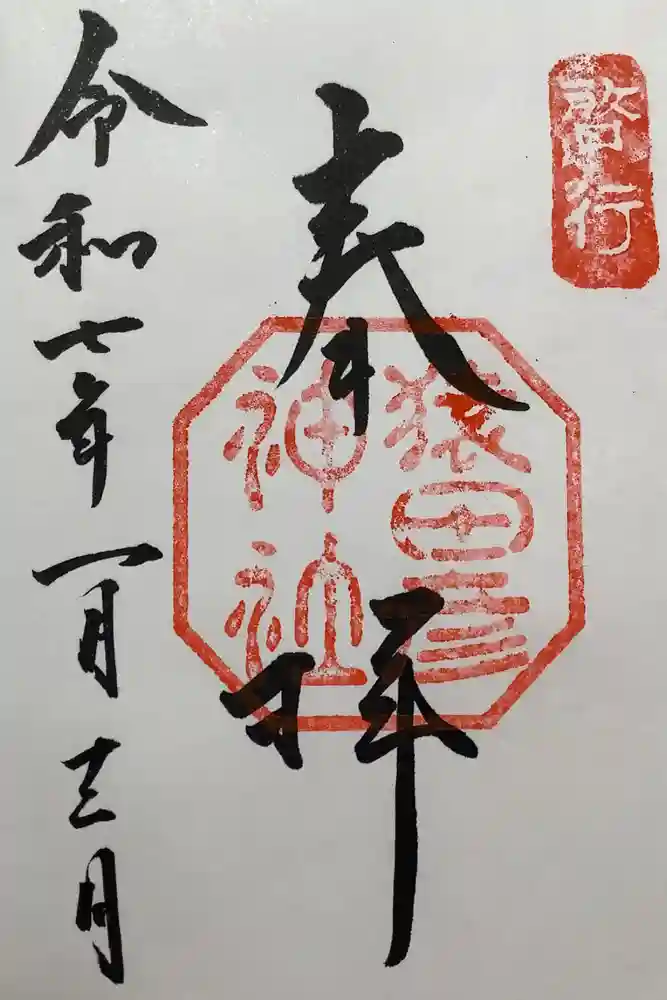 啓行
奉拝
猿田彦
神社
令和七年一月十三日